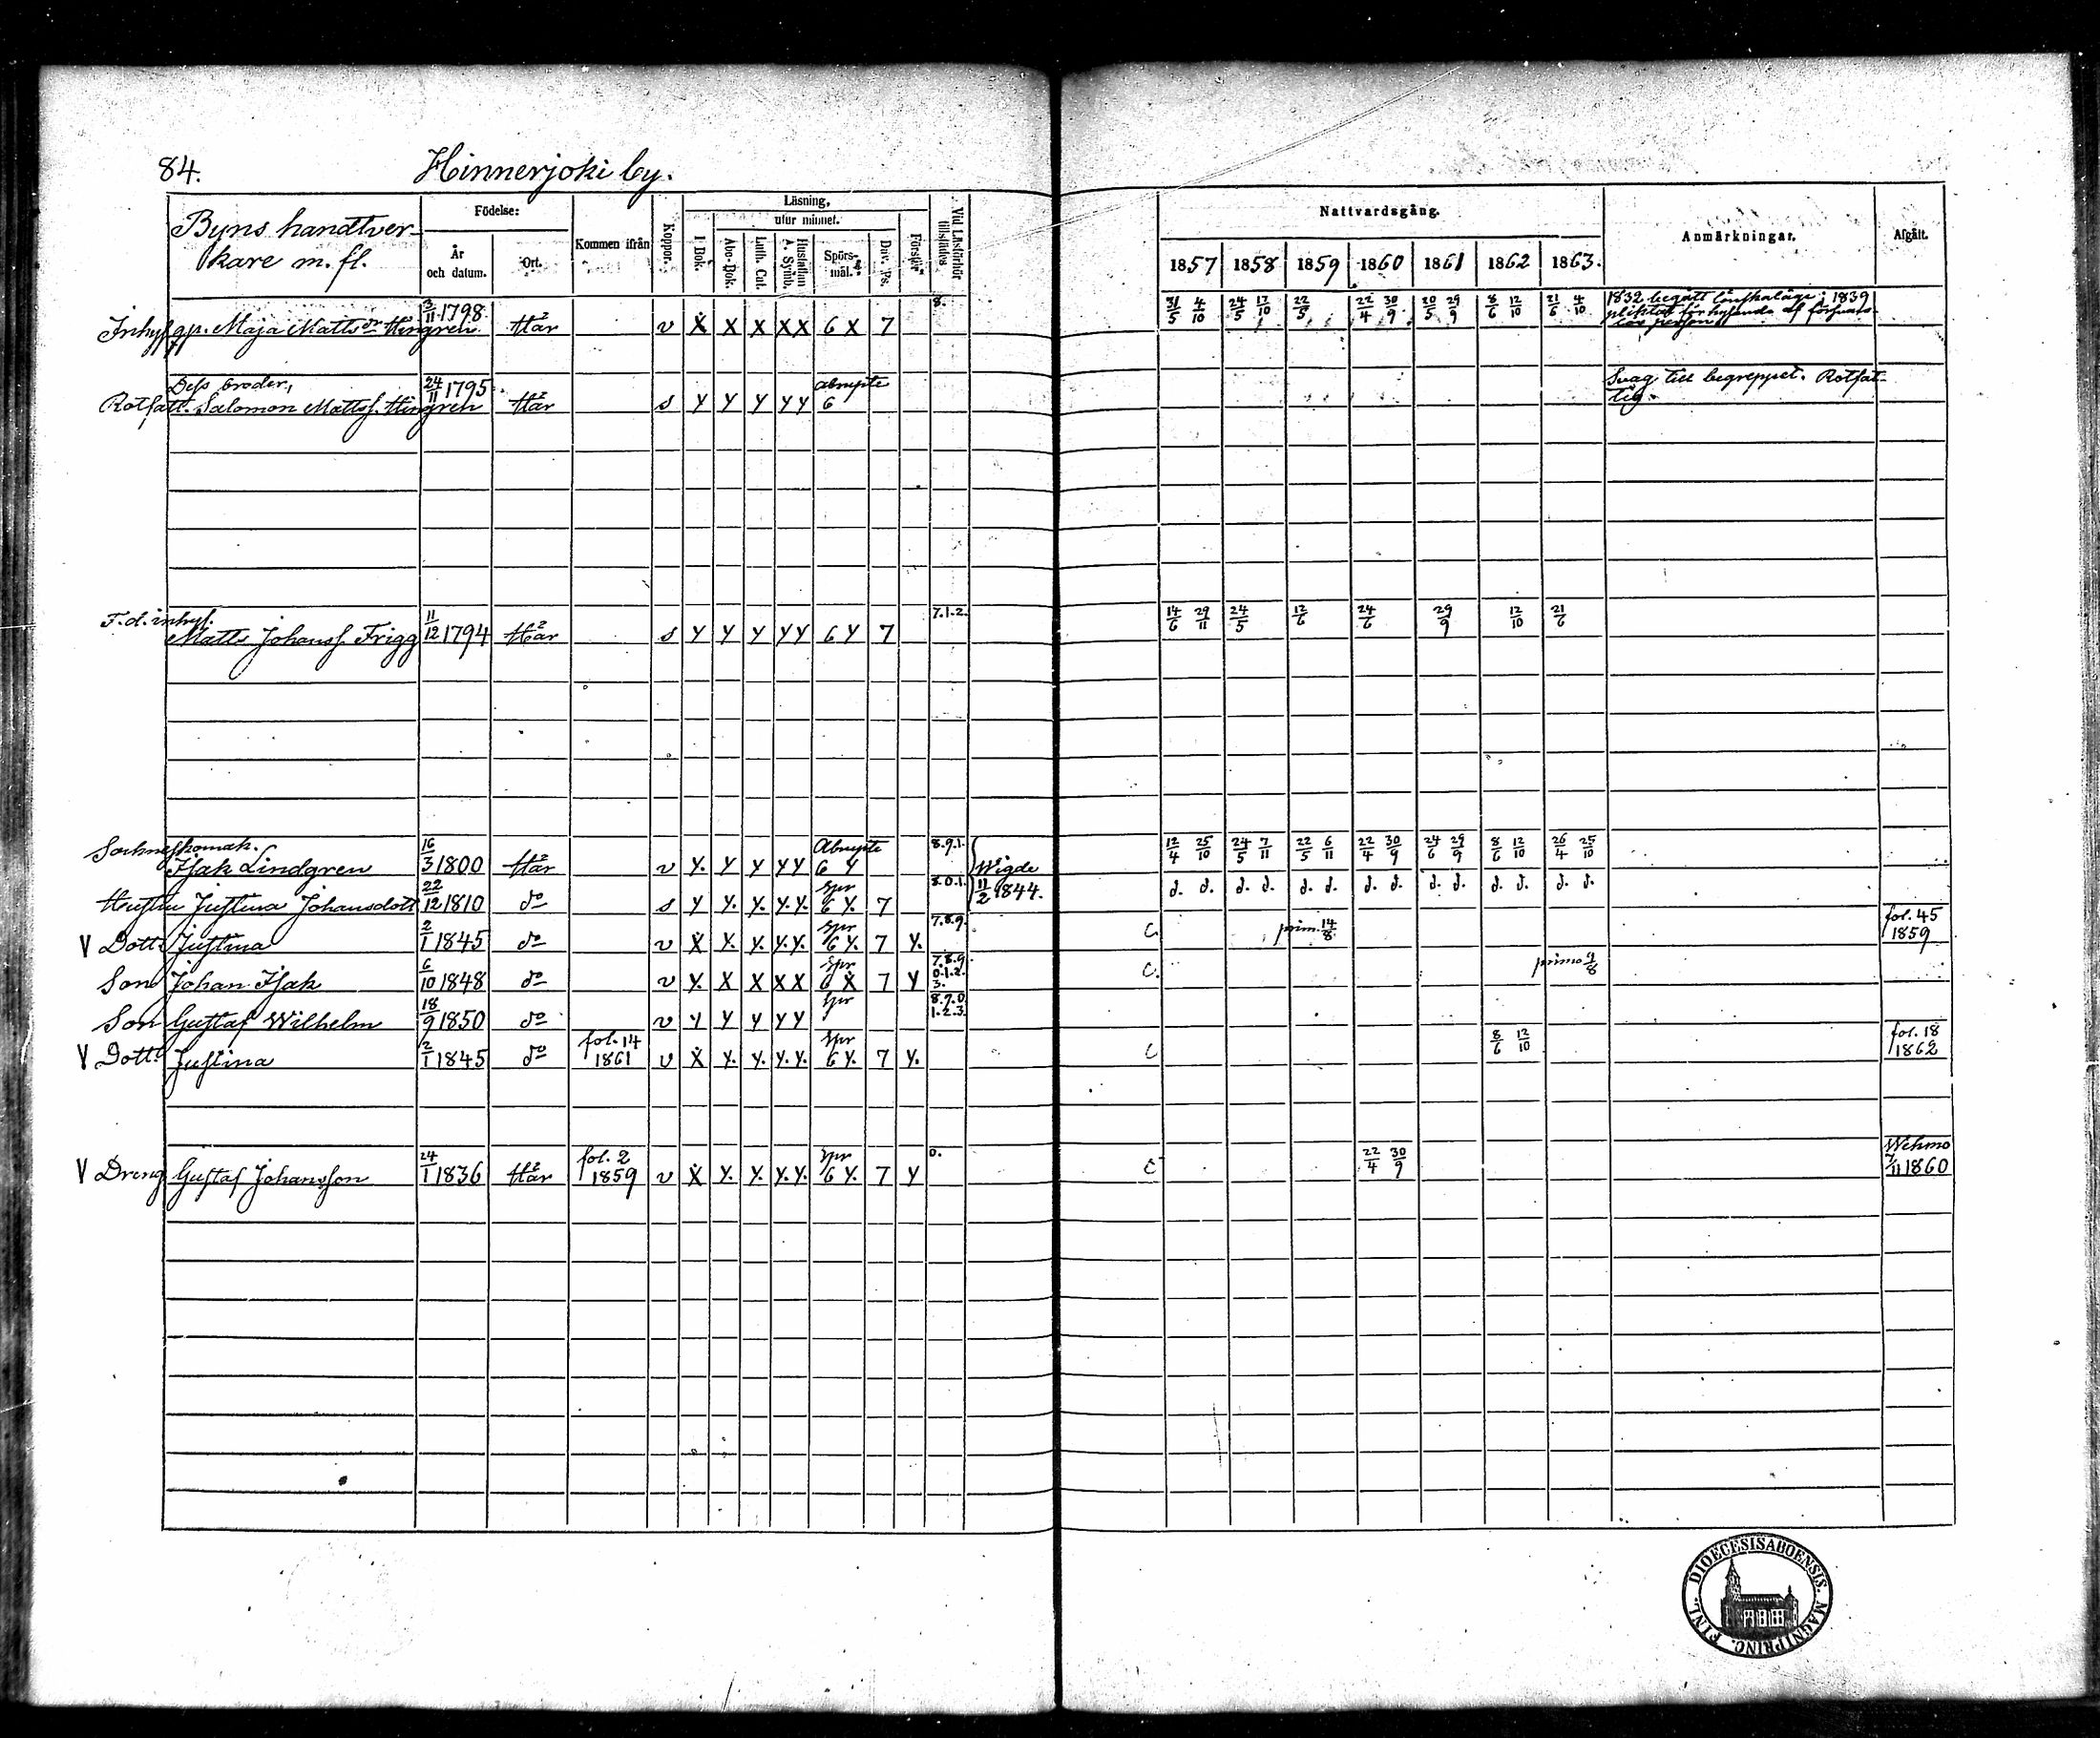 84. Hinnerjoki by.
Byns handtver-
kare m. fl.
Födelse:
År
och datum.
Ort.
Kommen ifrån
Koppor.
Läsning,
I Bok.
utur minnet.
Abc-Bok.
Luth. Cat.
Hustaflan
A. Symb.
Spörs-
mål.
Dav. Ps.
Förstår
Vid Läsförhör
tillstädes
Nattvardsgång.
1857 1858 1859 1860 1861 1862 1863.
Anmärkningar.
Afgått.
Inhys qp. Maja Mattsdr Hingren 3/11 1798 Här v X X X XX 6 X 7 8. 31/5 4/10 24/5 17/10 22/5 22/4 30/9 20/5 29/9 8/6 12/10 21/6 4/10
1832 begått lönskaläge; 1839
pliktat för hysande af försvars-
lös person
Dess broder,
Rotfatt. Salomon Mattss. Hingren 24/11 1795 Här s y y y yy abrupte 6
Svag till begreppet. Rotfat-
tig.
F.d. inhys.
Matts Johanss. Frigg 11/12 1794 Här s y y y yy 6 y 7 7.1.2. 14/6 29/11 24/5 12/6 24/6 29/9 12/10 21/6
Sockneskomak.
Isak Lindgren 16/3 1800 Här v y. y y yy Abrupte 6 y 8.9.1. 12/4 25/10 24/5 7/11 22/5 6/11 22/4 30/9 24/6 29/9 8/6 12/10 26/4 25/10
Wigde
11/2 1844.
Hustru Justina Johansdott 22/12 1810 do s y y. y. y.y. Spr 6 y. 7 8.0.1. d. d. d. d. d. d. d. d. d. d. d. d. d. d.
V Dottr Justina 2/1 1845 do v X y. y. y.y. Spr 6 y. 7 y. 7.8.9. C. prim. 14/8 fol. 45
1859
Son Johan Isak 6/10 1848 do v y. X X XX Spr 6 X 7 y 7.8.9.
0.1.2.
3. C. primo 9/8
Son Gustaf Wilhelm 18/9 1850 do v y y y yy Spr 8.9.0.
1.2.3.
V Dottr Justina 2/1 1845 do fol. 14
1861 v X y. y. y.y. Spr 6 y. 7 y. C 8/6 12/10 fol. 18
1862
V Dreng Gustaf Johansson 24/1 1836 Här fol. 2
1859 v X y. y. y.y. Spr 6 y. 7 y 0. C 22/4 30/9 Wehmo
7/11 1860
FINL. DIOECESIS ABOENSIS. MAGNI PRINC.